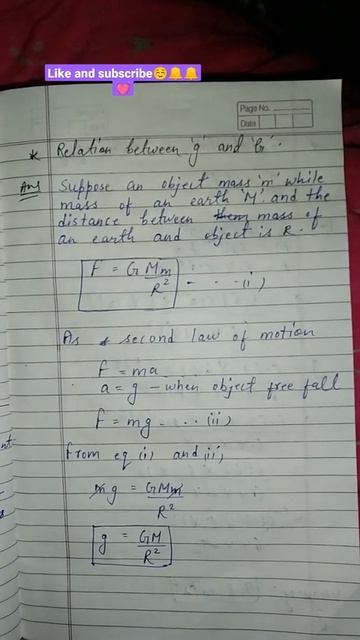 Like and subscribe☺️🔔🔔
💗
Page No.
Date
* Relation between 'g' and 'G'.
Ans Suppose an object mass 'm' while
mass of an earth 'M' and the
distance between them mass of
an earth and object is R.
F = G Mm/R² - - - - (i)
As second law of motion
F = ma
a = g - when object free fall
F = mg - - - - (ii)
from eq (i) and (ii)
mg = GMm/R²
g = GM/R²